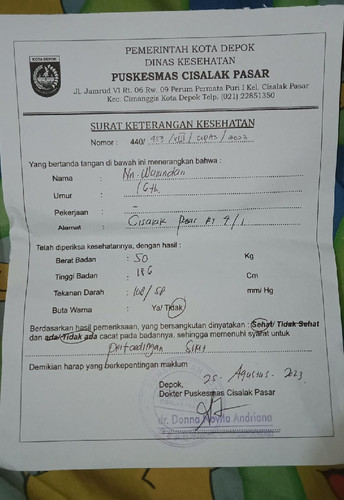 PEMERINTAH KOTA DEPOK
DINAS KESEHATAN
PUSKESMAS CISALAK PASAR
Jl. Jamrud VI Rt. 06 Rw. 09 Perum Permata Puri I Kel. Cisalak Pasar
Kec. Cimanggis Kota Depok Telp. (021) 22851350
SURAT KETERANGAN KESEHATAN
Nomor : 440/ / 2023
Yang bertanda tangan di bawah ini menerangkan bahwa :
Nama : Nn.
Umur : 16 th
Pekerjaan : -
Alamat : Cisalak Pasar Rt 4/1
Telah diperiksa kesehatannya, dengan hasil :
Berat Badan : 50 Kg
Tinggi Badan : Cm
Tekanan Darah : mm/ Hg
Buta Warna : Ya/ Tidak
Berdasarkan hasil pemeriksaan, yang bersangkutan dinyatakan : Sehat/ Tidak Sehat
dan ada/Tidak ada cacat pada badannya, sehingga memenuhi syarat untuk
Demikian harap yang berkepentingan maklum
Depok, 25 - Agustus - 2023
Dokter Puskesmas Cisalak Pasar
dr. Donna Novita Andriana